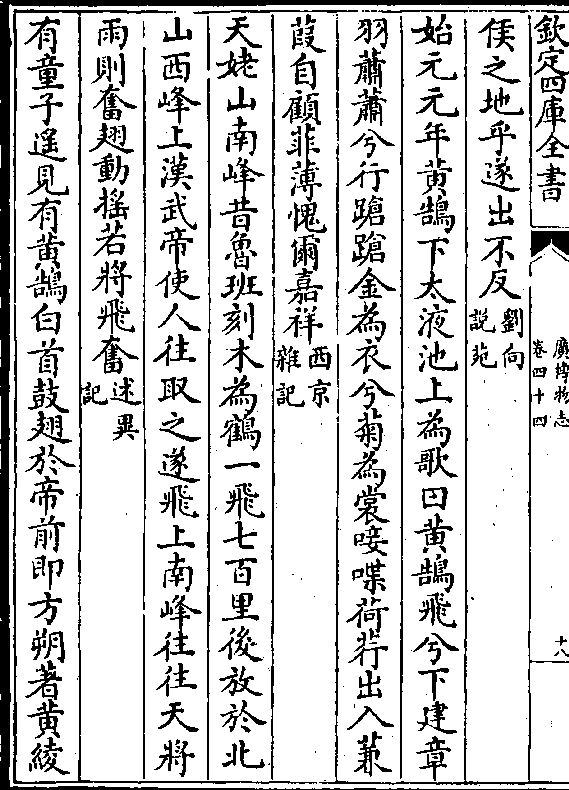 欽定四庫全書
廣博物志
卷四十四
十八
侯之地乎遂出不反劉向說苑
始元元年黄鵠下太液池上為歌曰黄鵠飛兮下建章
羽蕭蕭兮行蹌蹌金為衣兮菊為裳唼喋荷荇出入蒹
葭自顧菲薄愧爾嘉祥西京雜記
天姥山南峰昔魯班刻木為鶴一飛七百里後放於北
山西峰上漢武帝使人往取之遂飛上南峰往往天將
雨則奮翅動揺若將飛奮述異記
有童子遥見有黄鵠白首鼓翅於帝前即方朔著黄綾